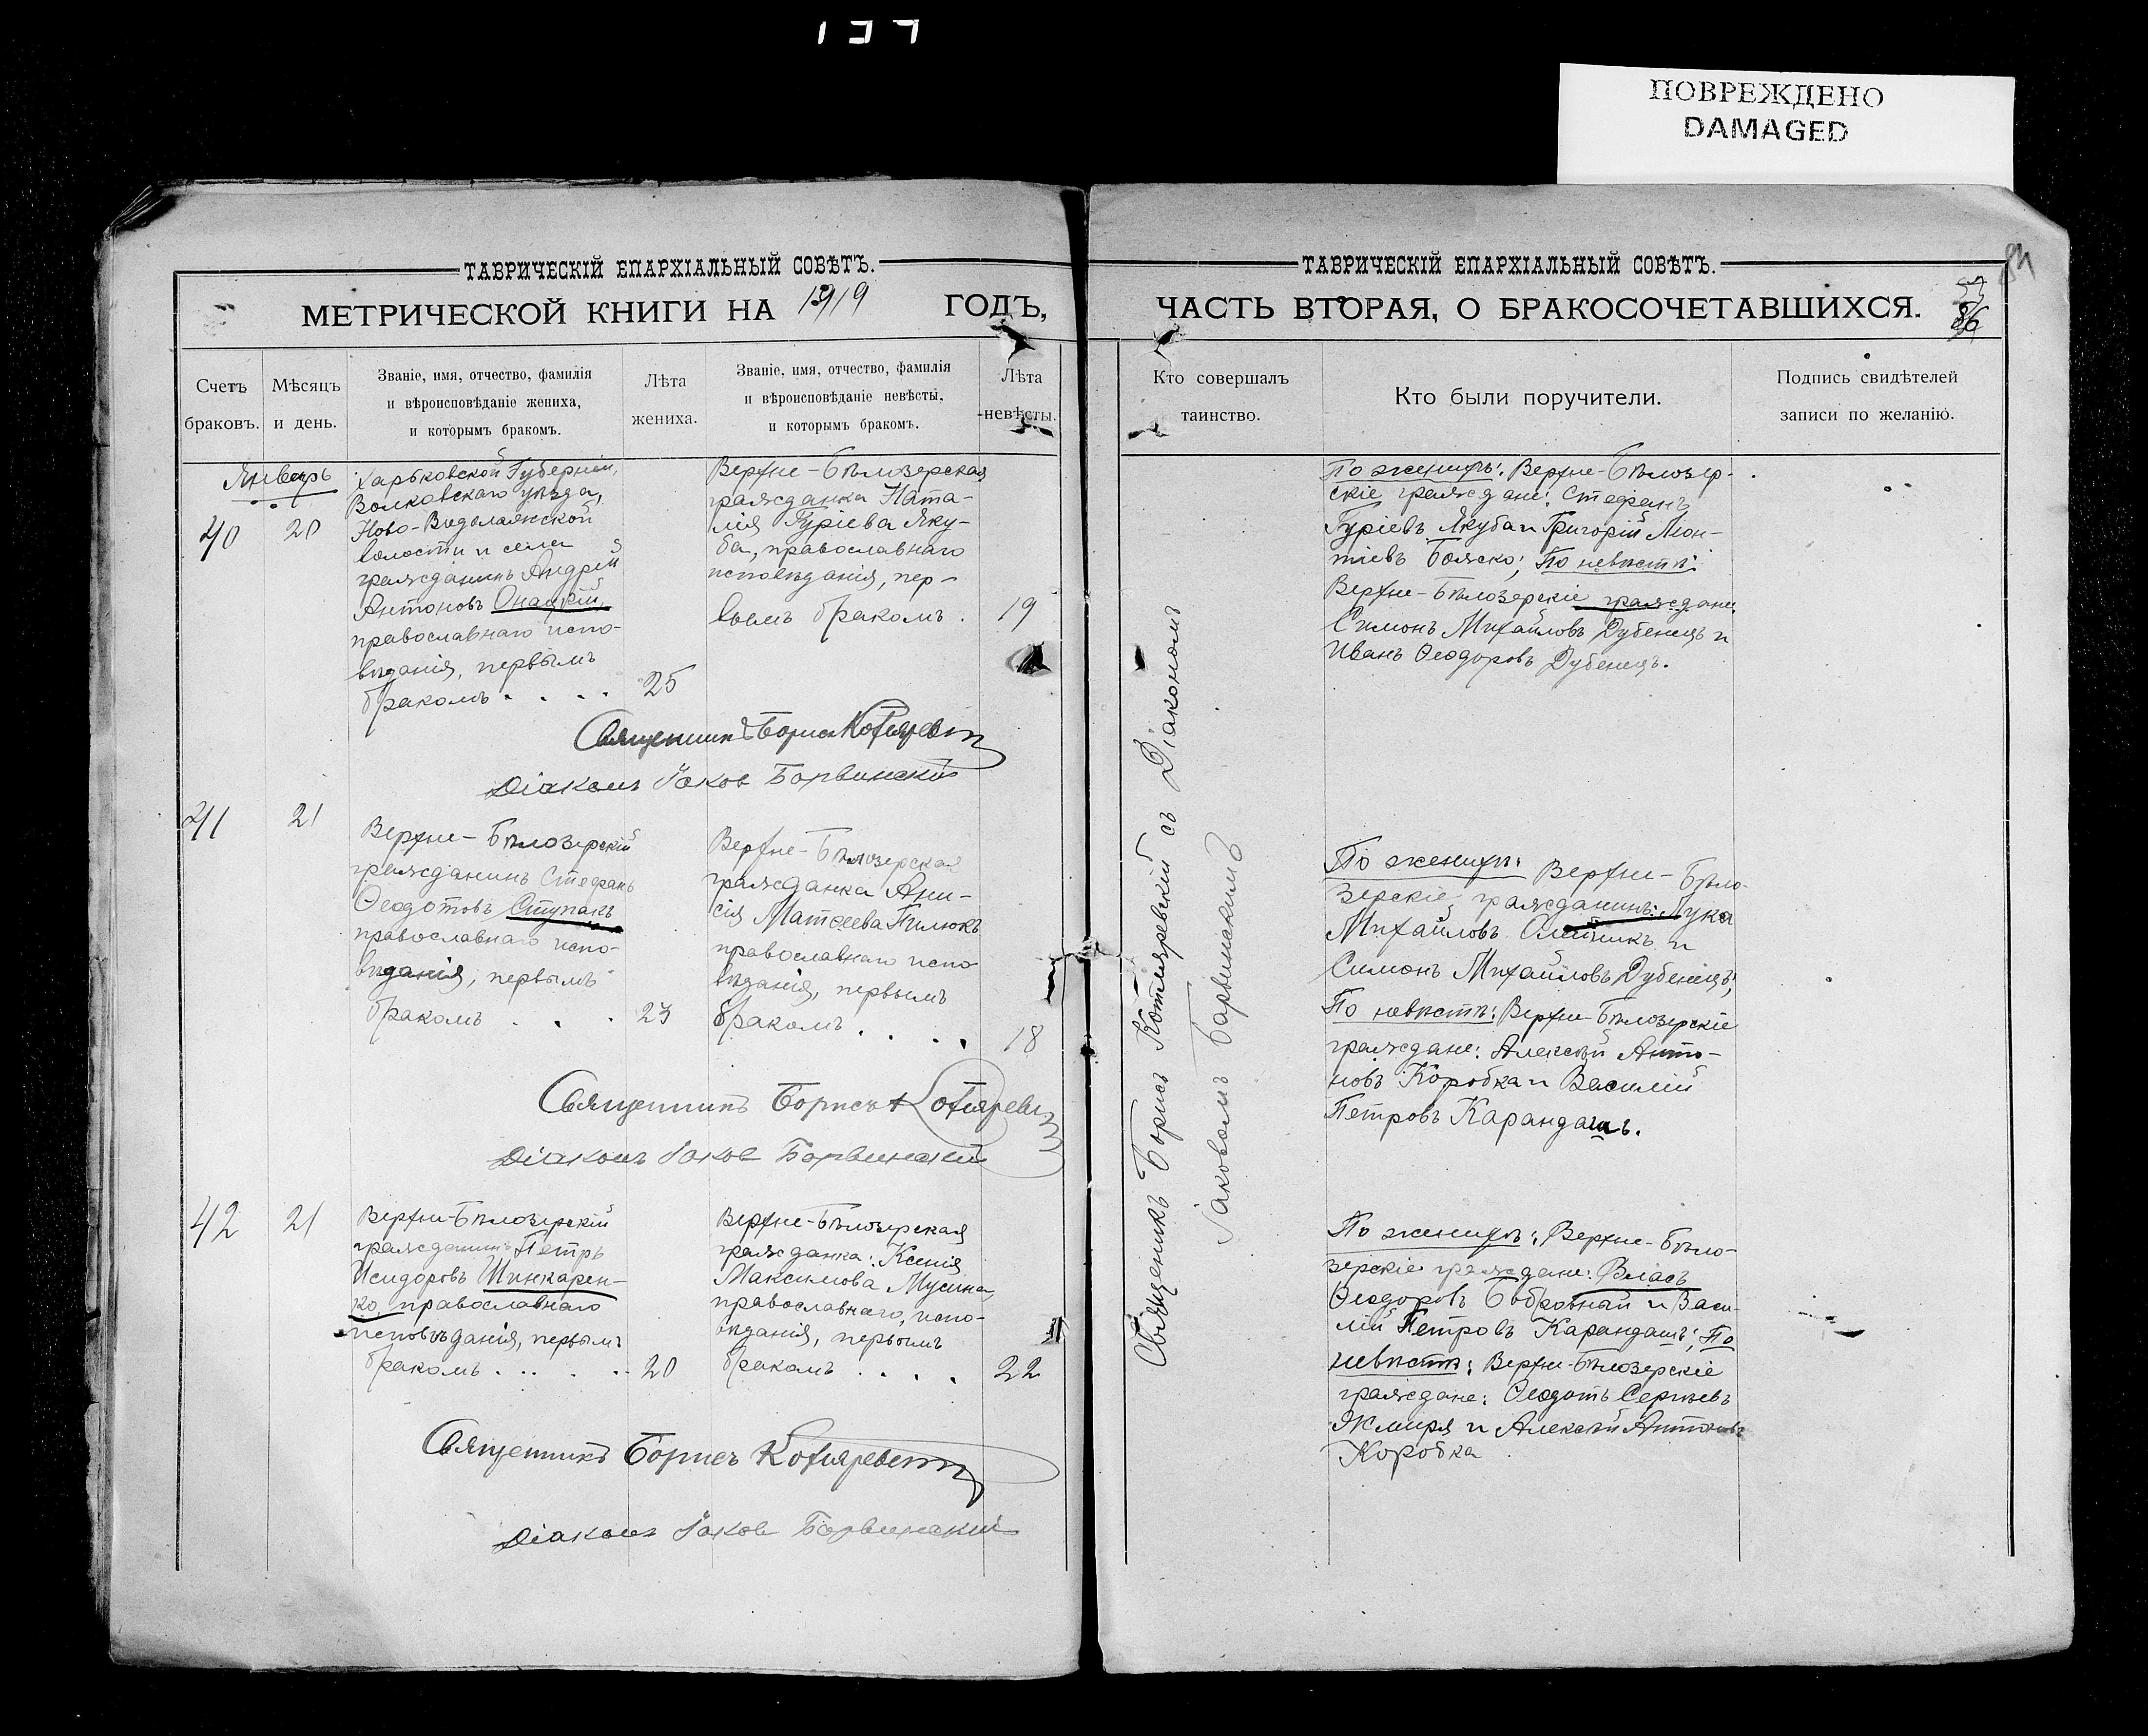 ПОВРЕЖДЕНО
DAMAGED
ТАВРИЧЕСКІЙ ЕПАРХІАЛЬНЫЙ СОВѢТЪ.
МЕТРИЧЕСКОЙ КНИГИ НА 1919 ГОДЪ,
Счетъ браковъ.
Мѣсяцъ и день.
Званіе, имя, отчество, фамилія
и вѣроисповѣданіе жениха,
и которымъ бракомъ.
Лѣта жениха.
Званіе, имя, отчество, фамилія
и вѣроисповѣданіе невѣсты,
и которымъ бракомъ.
Лѣта невѣсты.
Январь
40
20
Харьковской Губерніи,
Волковскаго уѣзда,
Ново-Водолажской
волости и села
гражданинъ Андрей
Антоновъ Онацкій,
православнаго испо-
вѣданія, первымъ
бракомъ. . . .
25
Верхне-Бѣлозерская
гражданка Ната-
лія Гуріева Яку-
ба, православнаго
исповѣданія, пер-
вымъ бракомъ.
19
Священникъ Борисъ Котляревскій
Діаконъ Іаков Барвинскій
41
21
Верхне-Бѣлозерскій
гражданинъ Стефанъ
Ѳеодотовъ Ступакъ
православнаго испо-
вѣданія, первымъ
бракомъ . . .
23
Верхне-Бѣлозерская
гражданка Ани-
сія Матѳеева Пилюкъ
православнаго испо
вѣданія, первымъ
бракомъ . . . .
18
Священникъ Борисъ Котляревскій
Діаконъ Іаков Барвинскій
42
21
Верхне-Бѣлозерскій
гражданинъ Петръ
Исидоровъ Шинкарен-
ко, православнаго
исповѣданія, первымъ
бракомъ . . . .
20
Верхне-Бѣлозерская
гражданка: Ксенія
Максимова Мусина,
православнаго, испо-
вѣданія, первымъ
бракомъ . . . .
22
Священникъ Борисъ Котляревскій
Діаконъ Іаков Барвинскій
ТАВРИЧЕСКІЙ ЕПАРХІАЛЬНЫЙ СОВѢТЪ.
ЧАСТЬ ВТОРАЯ, О БРАКОСОЧЕТАВШИХСЯ.
86
Кто совершалъ
таинство.
Кто были поручители.
Подпись свидѣтелей
записи по желанію.
Священникъ Борисъ Котляревскій съ Діакономъ
Іаковомъ Барвинскимъ
По женихѣ: Верхне-Бѣлозер-
скіе граждане: Стефанъ
Гуріевъ Якуба и Григорій Леон-
тіевъ Бояско; По невѣстѣ:
Верхне-Бѣлозерскіе граждане
Симонъ Михайловъ Дубенецъ и
Иванъ Ѳеодоровъ Дубенецъ.
По женихѣ: Верхне-Бѣло-
зерскіе, гражданинъ: Лука
Михайловъ Олейникъ и
Симонъ Михайловъ Дубенецъ;
По невѣстѣ: Верхне-Бѣлозерскіе
граждане: Алексѣй Анто-
новъ Коробка и Василій
Петровъ Карандашъ.
По женихѣ: Верхне-Бѣло-
зерскіе граждане: Власъ
Ѳеодоровъ Бобровный и Васи-
лій Петровъ Карандашъ; По
невѣстѣ: Верхне-Бѣлозерскіе
граждане: Ѳеодотъ Сергѣевъ
Жмиря и Алексѣй Антоновъ
Коробка